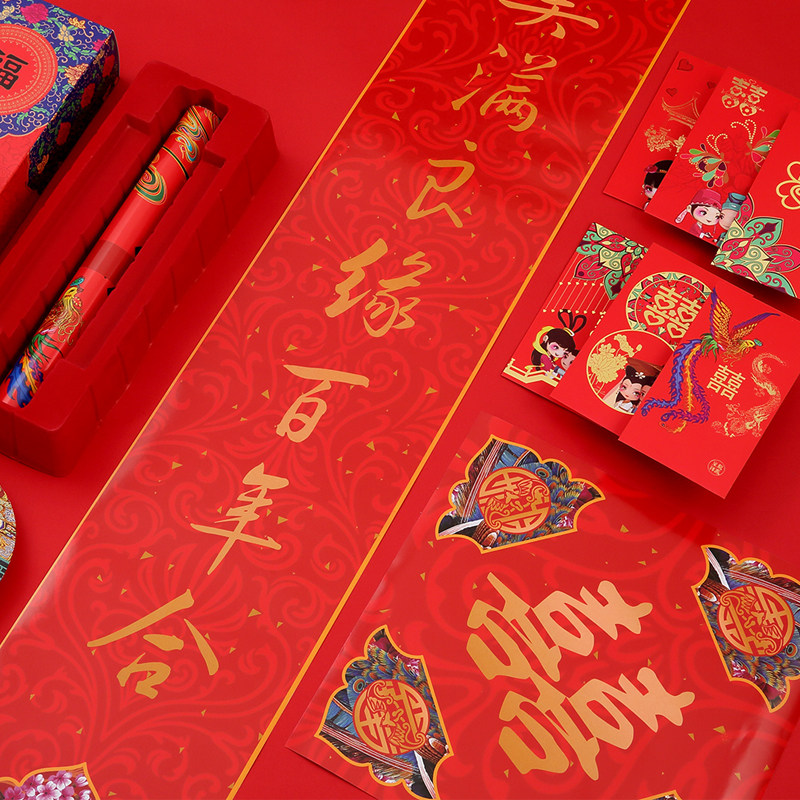 福
美满良缘百年合
囍
囍
囍
囍